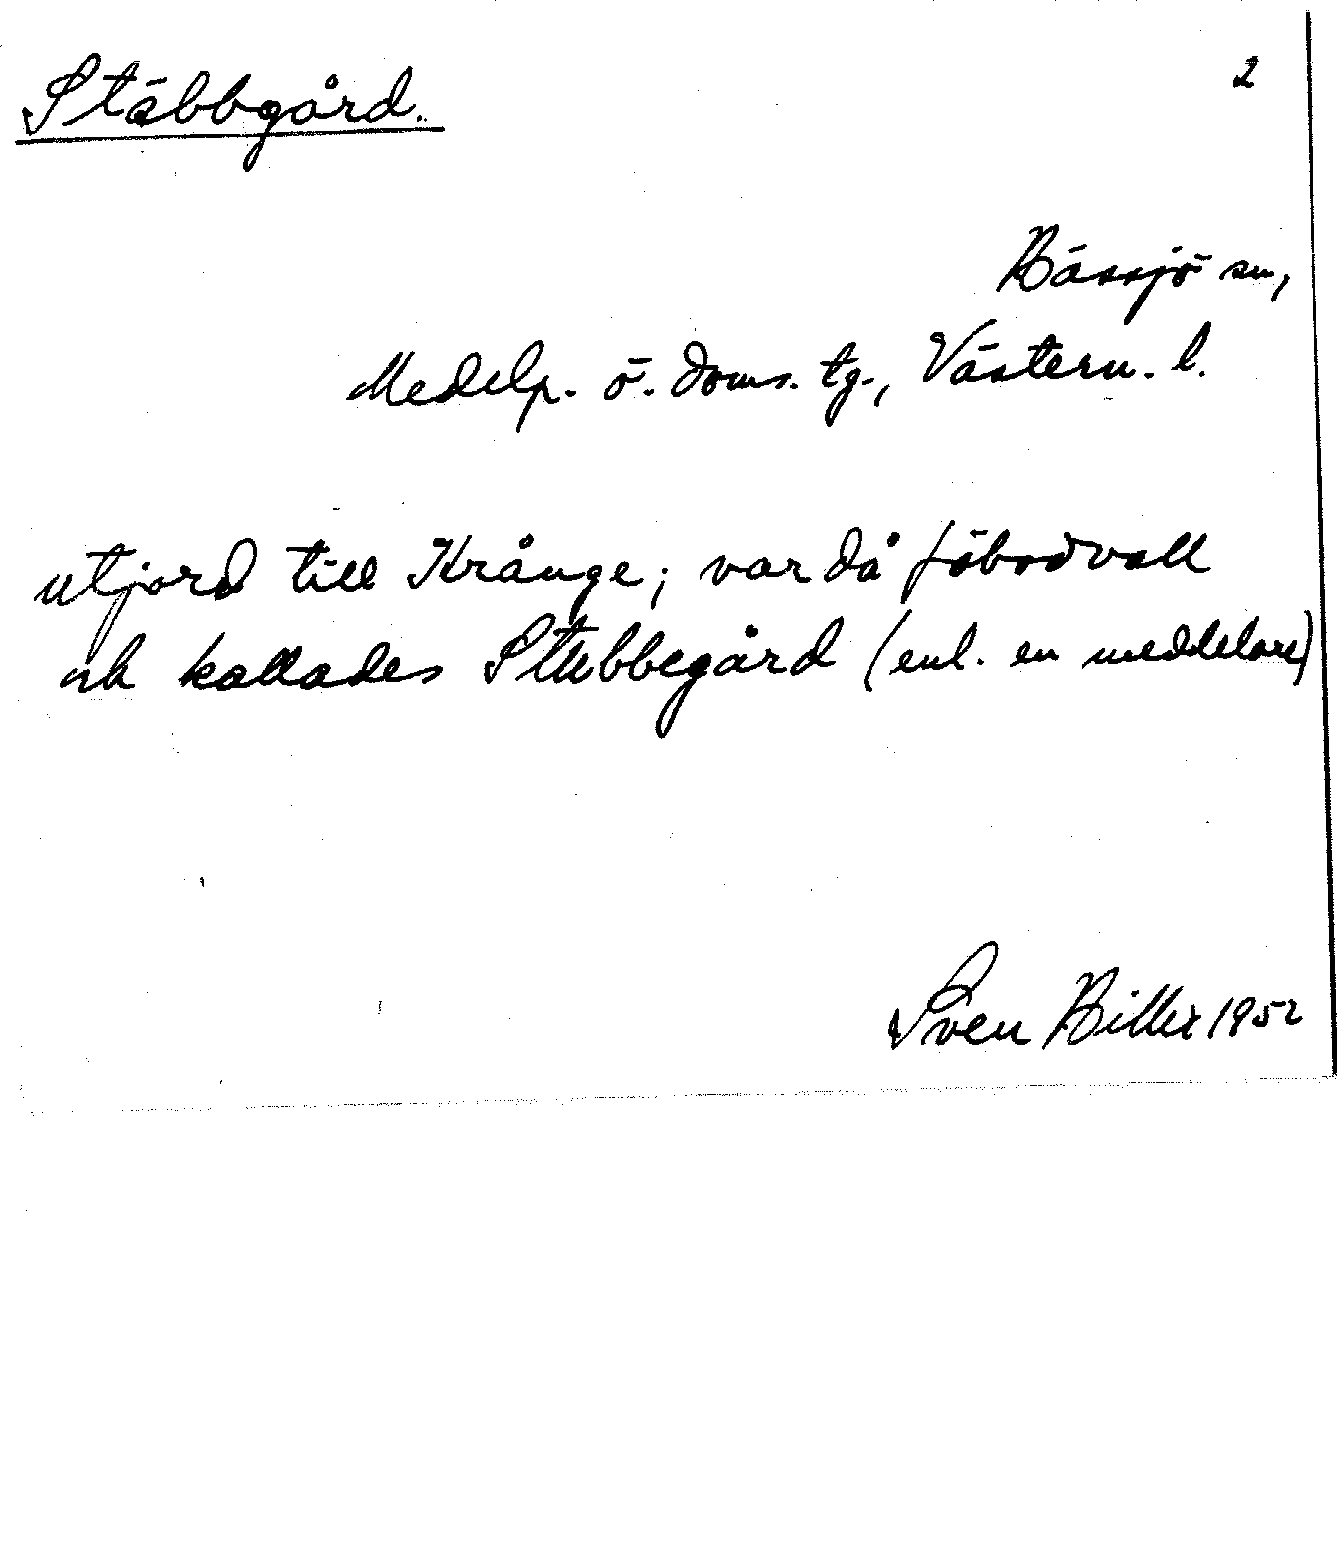 Stäbbgård.
2
Hässjö sn,
Medelp. ö. doms. tg., Västern. l.
utjord till Krånge; var då fäbodvall
och kallades Stubbegård (enl. en meddelare)
Sven Biller 1952